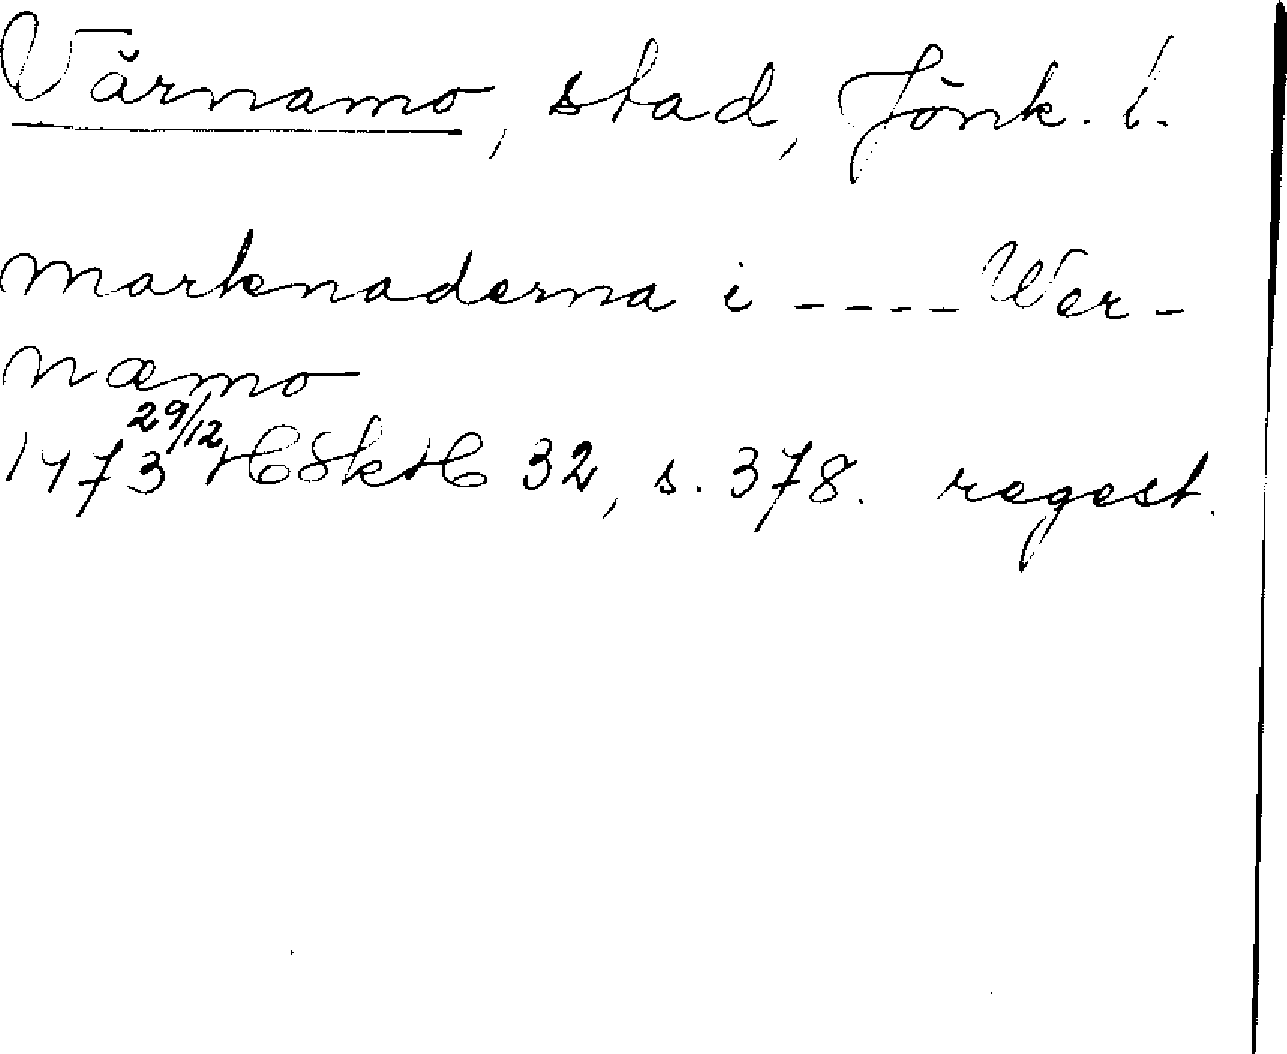 Värnamo, stad, Jönk. l.
marknaderna i ---- Wer-
næmo
1473 29/12 HSkH 32, s. 378. regest.